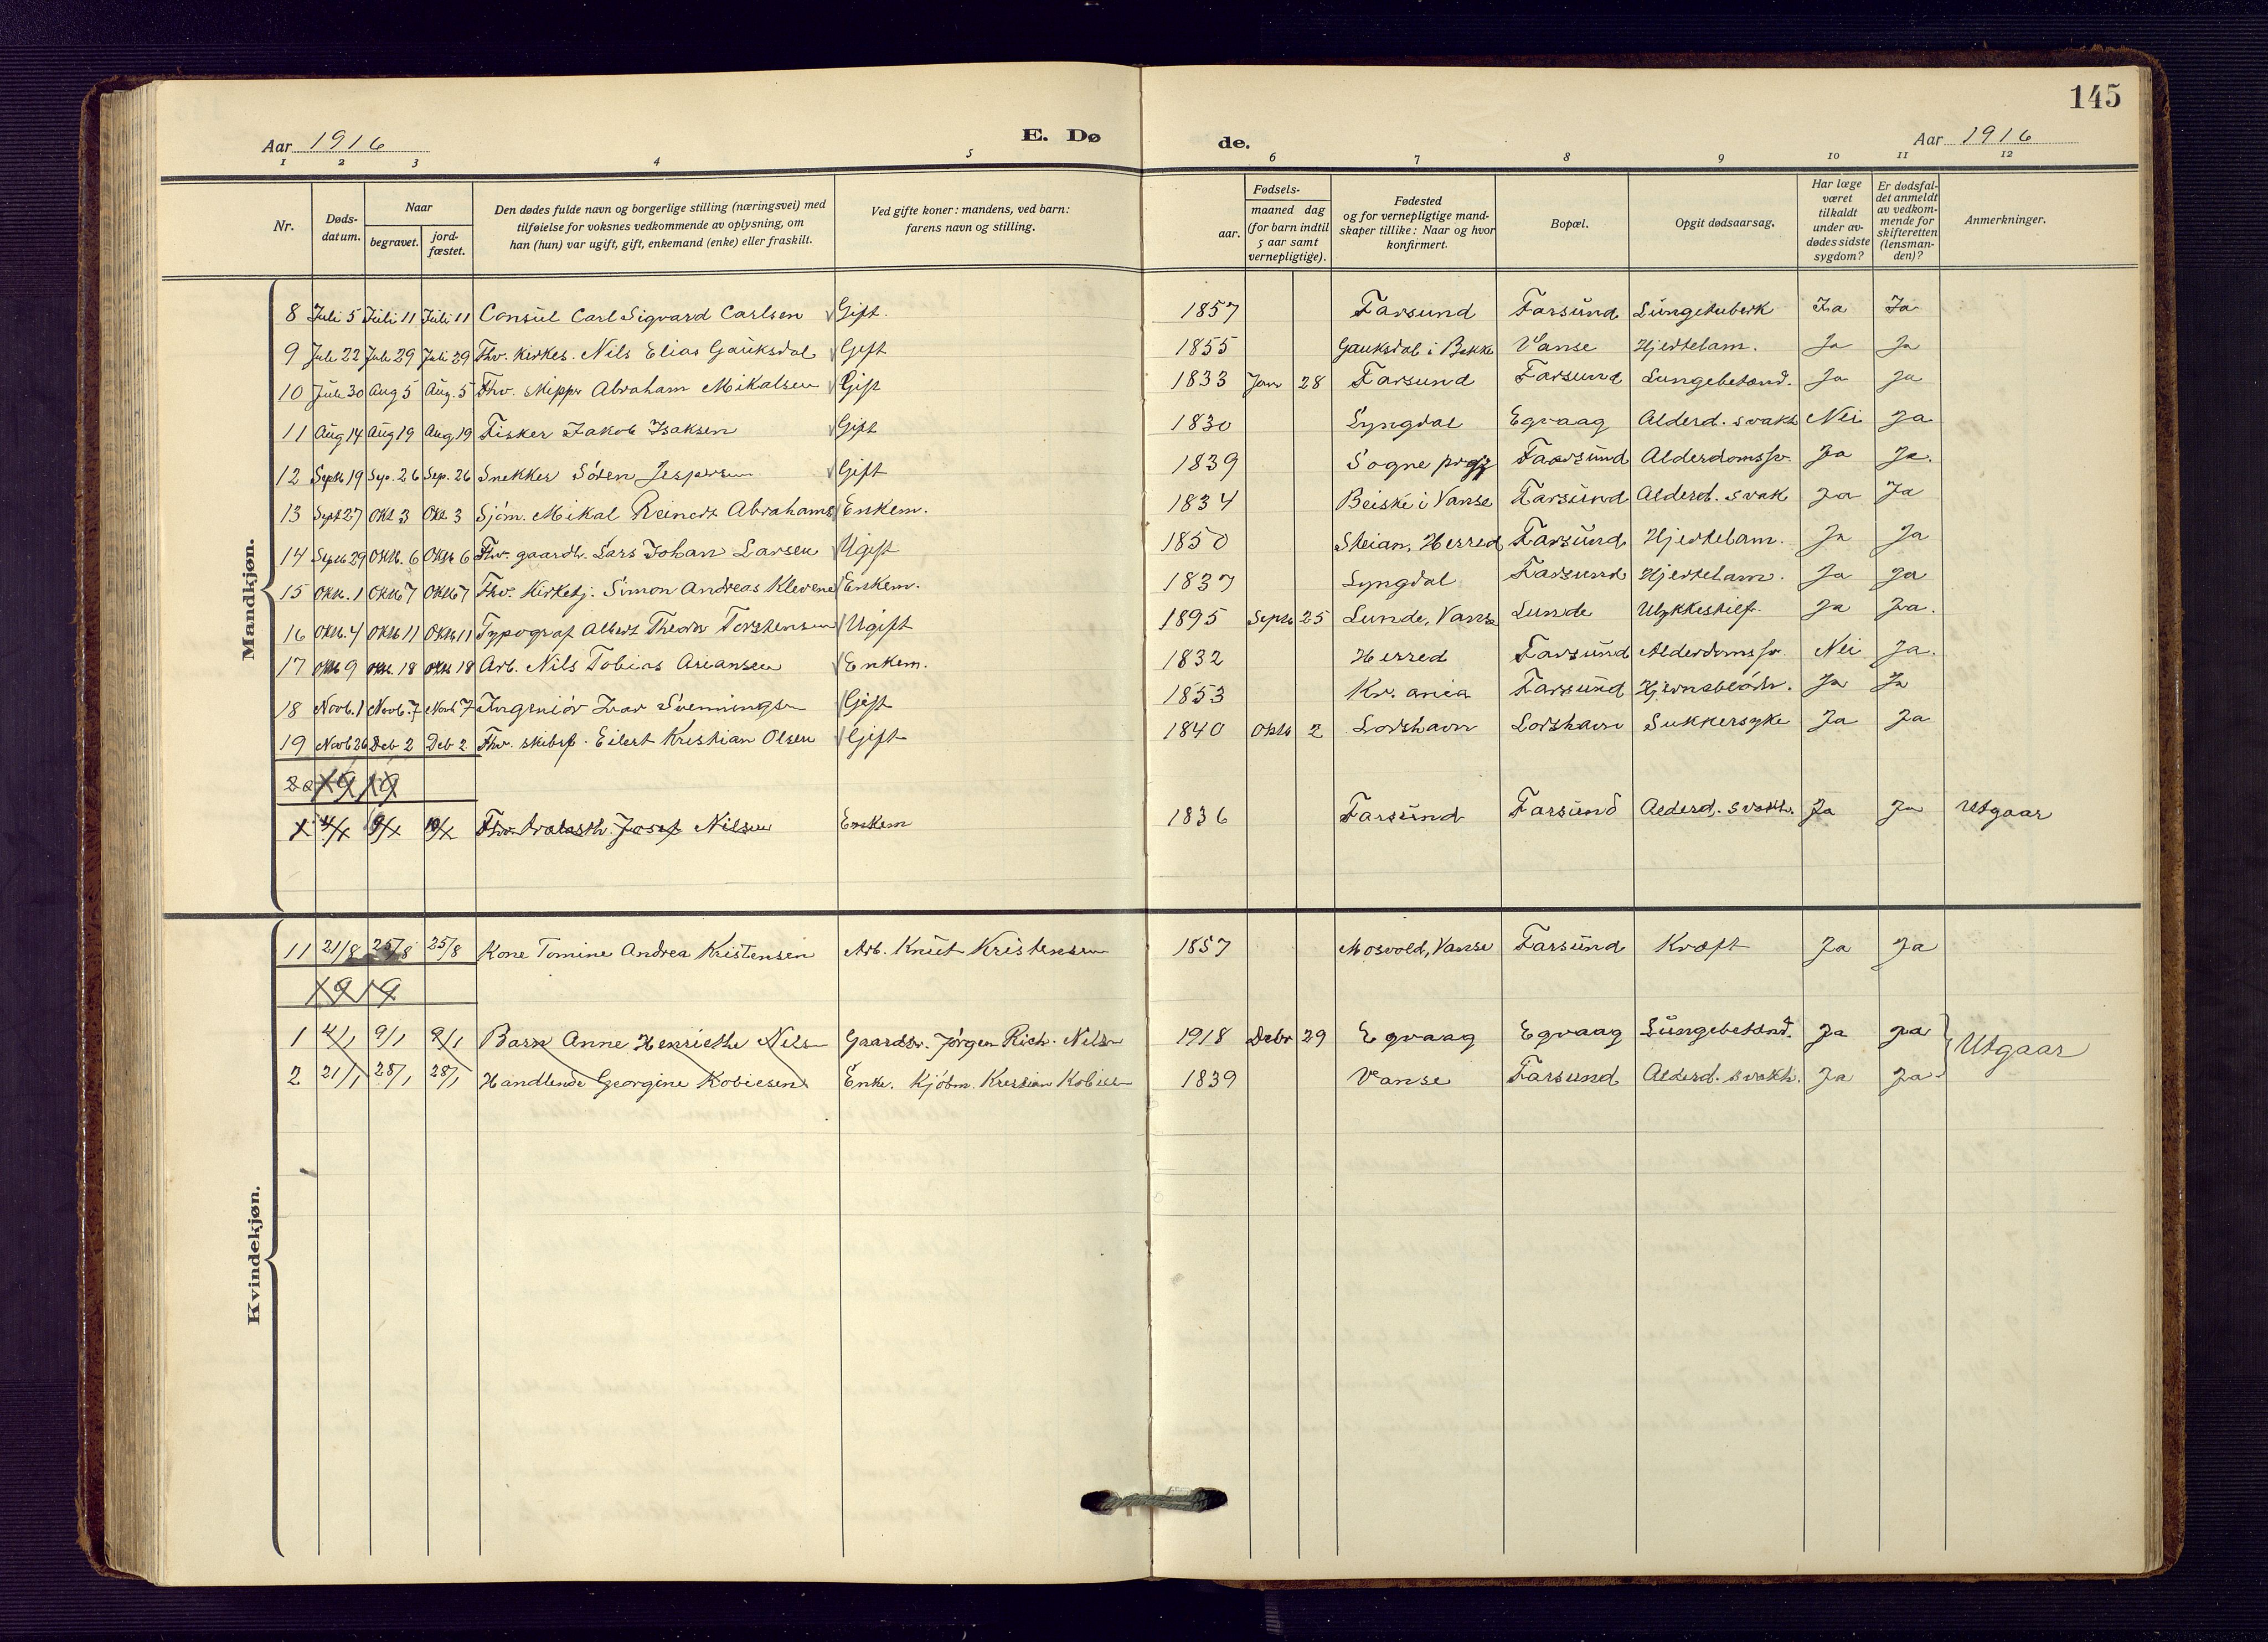 145
Aar 1916 E. Dø de. Aar 1916
1 2 3 4 5 6 7 8 9 10 11 12
Nr.
Døds-datum.
Naar
begravet.
jord-fæstet.
Den dødes fulde navn og borgerlige stilling (næringsvei) med
tilføielse for voksnes vedkommende av oplysning, om
han (hun) var ugift, gift, enkemand (enke) eller fraskilt.
Ved gifte koner: mandens, ved barn:
farens navn og stilling.
Fødsels-
aar.
maaned dag
(for barn indtil
5 aar samt
vernepligtige).
Fødested
og for vernepligtige mand-
skaper tillike: Naar og hvor
konfirmert.
Bopæl.
Opgit dødsaarsag.
Har læge
været
tilkaldt
under av-
dødes sidste
sygdom?
Er dødsfal-
det anmeldt
av vedkom-
mende for
skifteretten
(lensman-
den)?
Anmerkninger.
Mandkjøn.
8 Juli 5 Juli 11 Juli 11 Consul Carl Sigvard Carlsen Gift. 1857 Farsund Farsund Lungetuberk Ja Ja
9 Juli 22 Juli 29 Juli 29 Fhv. kirkes. Nils Elias Gauksdal Gift 1855 Gauksdal i Bakke Vanse Hjertelam. Ja Ja
10 Juli 30 Aug 5 Aug. 5 Fhv. skippr Abraham Mikalsen Gift 1833 Janr 28 Farsund Farsund Lungebetænd. Ja Ja
11 Aug 14 Aug 19 Aug 19 Fisker Jakob Isaksen Gift 1830 Lyngdal Egvaag Alderd. svakh Nei Ja
12 Septb 19 Sep. 26 Sep. 26 Snekker Sören Jespersen Gift 1839 Sogne prgj Farsund Alderdomssv. Ja Ja.
13 Sept 27 Okt 3 Okt 3 Sjöm. Mikal Reinert Abrahams Enkem. 1834 Beiske i Vanse Farsund Alderd. svak Ja Ja
14 Septb 29 Oktb. 6 Oktb 6 Fhv. gaardb. Lars Johan Larsen Ugift 1850 Steian, Herred Farsund Hjertelam. Ja Ja
15 Oktb. 1 Oktb 7 Oktb 7 Fhv. Kirketj. Simon Andreas Klevene Enkem. 1837 Lyngdal Farsund Hjertelam. Ja Ja
16 Oktb. 4 Oktb 11 Oktb 11 Typograf Albert Theodor Torstensen Ugift 1895 Septb 25 Lunde, Vanse Lunde Ulykkestilf. Ja Ja.
17 Oktb 9 Oktb. 18 Oktb 18 Arb. Nils Tobias Areansen Enkem. 1832 Herred Farsund Alderdomssv. Nei Ja.
18 Novb. 1 Novb. 7 Novb 7 Ingeniör Ivar Svennings Gift 1853 Kr.ania Farsund Hjerneblödn. Ja Ja
19 Novb 26 Deb 2 Deb 2 Fhv. skibsf. Eilert Kristian Olsen Gift 1840 Oktb 2 Lorshavn Lorshavn Sukkersyke Ja Ja
1919
Josef Nilsen Enkem 1836 Farsund Farsund Alderd. svakh. Ja Ja Utgaar
Kvindekjøn.
11 21/8 25/8 25/8 Kone Tomine Andrea Kristensen Arb. Knut Kristensen 1857 Mosvold, Vanse Farsund Kræft Ja Ja
1919
1 4/1 9/1 9/1 Barn Anne Henriette Nils Gaardbr. Jörgen Rich. Nils 1918 Debr 29 Egvaag Egvaag Lungebetænd. Ja Ja
Utgaar
2 21/1 28/1 28/1 Handlende Georgine Kobiesen Enke. Kjöbm. Kristian Kobies 1839 Vanse Farsund Alderd. svakh. Ja Ja